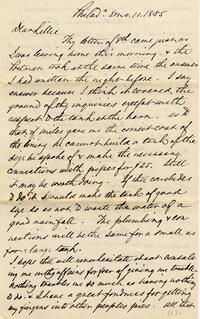 Philada. 8mo. 11. 1885
Dear Lellie
Thy letter of 8th came just as
I was leaving home this morning & the
Postman took at the same time the answer
I had written the night before. I say
answer because I think it covered the
ground of thy inquiries except with
respect to the tank at the barn. as to
that, if Miles gave me the correct cost of
the one, they cannot build a tank of the
size he spoke of & make the necessary
connections with pipes for $25. Still
it may be worth doing. If they conclude
to do it I would make the tank of good
size so as not to waste the water of a
good rainfall. The plumbing & con
nections will be the same for a small as
for a large tank.
I hope thee will not hesitate about consult
ing me on thy affairs for fear of giving me trouble
nothing troubles me so much as having nothing
to do. & I have a great fondness for getting
my fingers into other peoples pies. all that